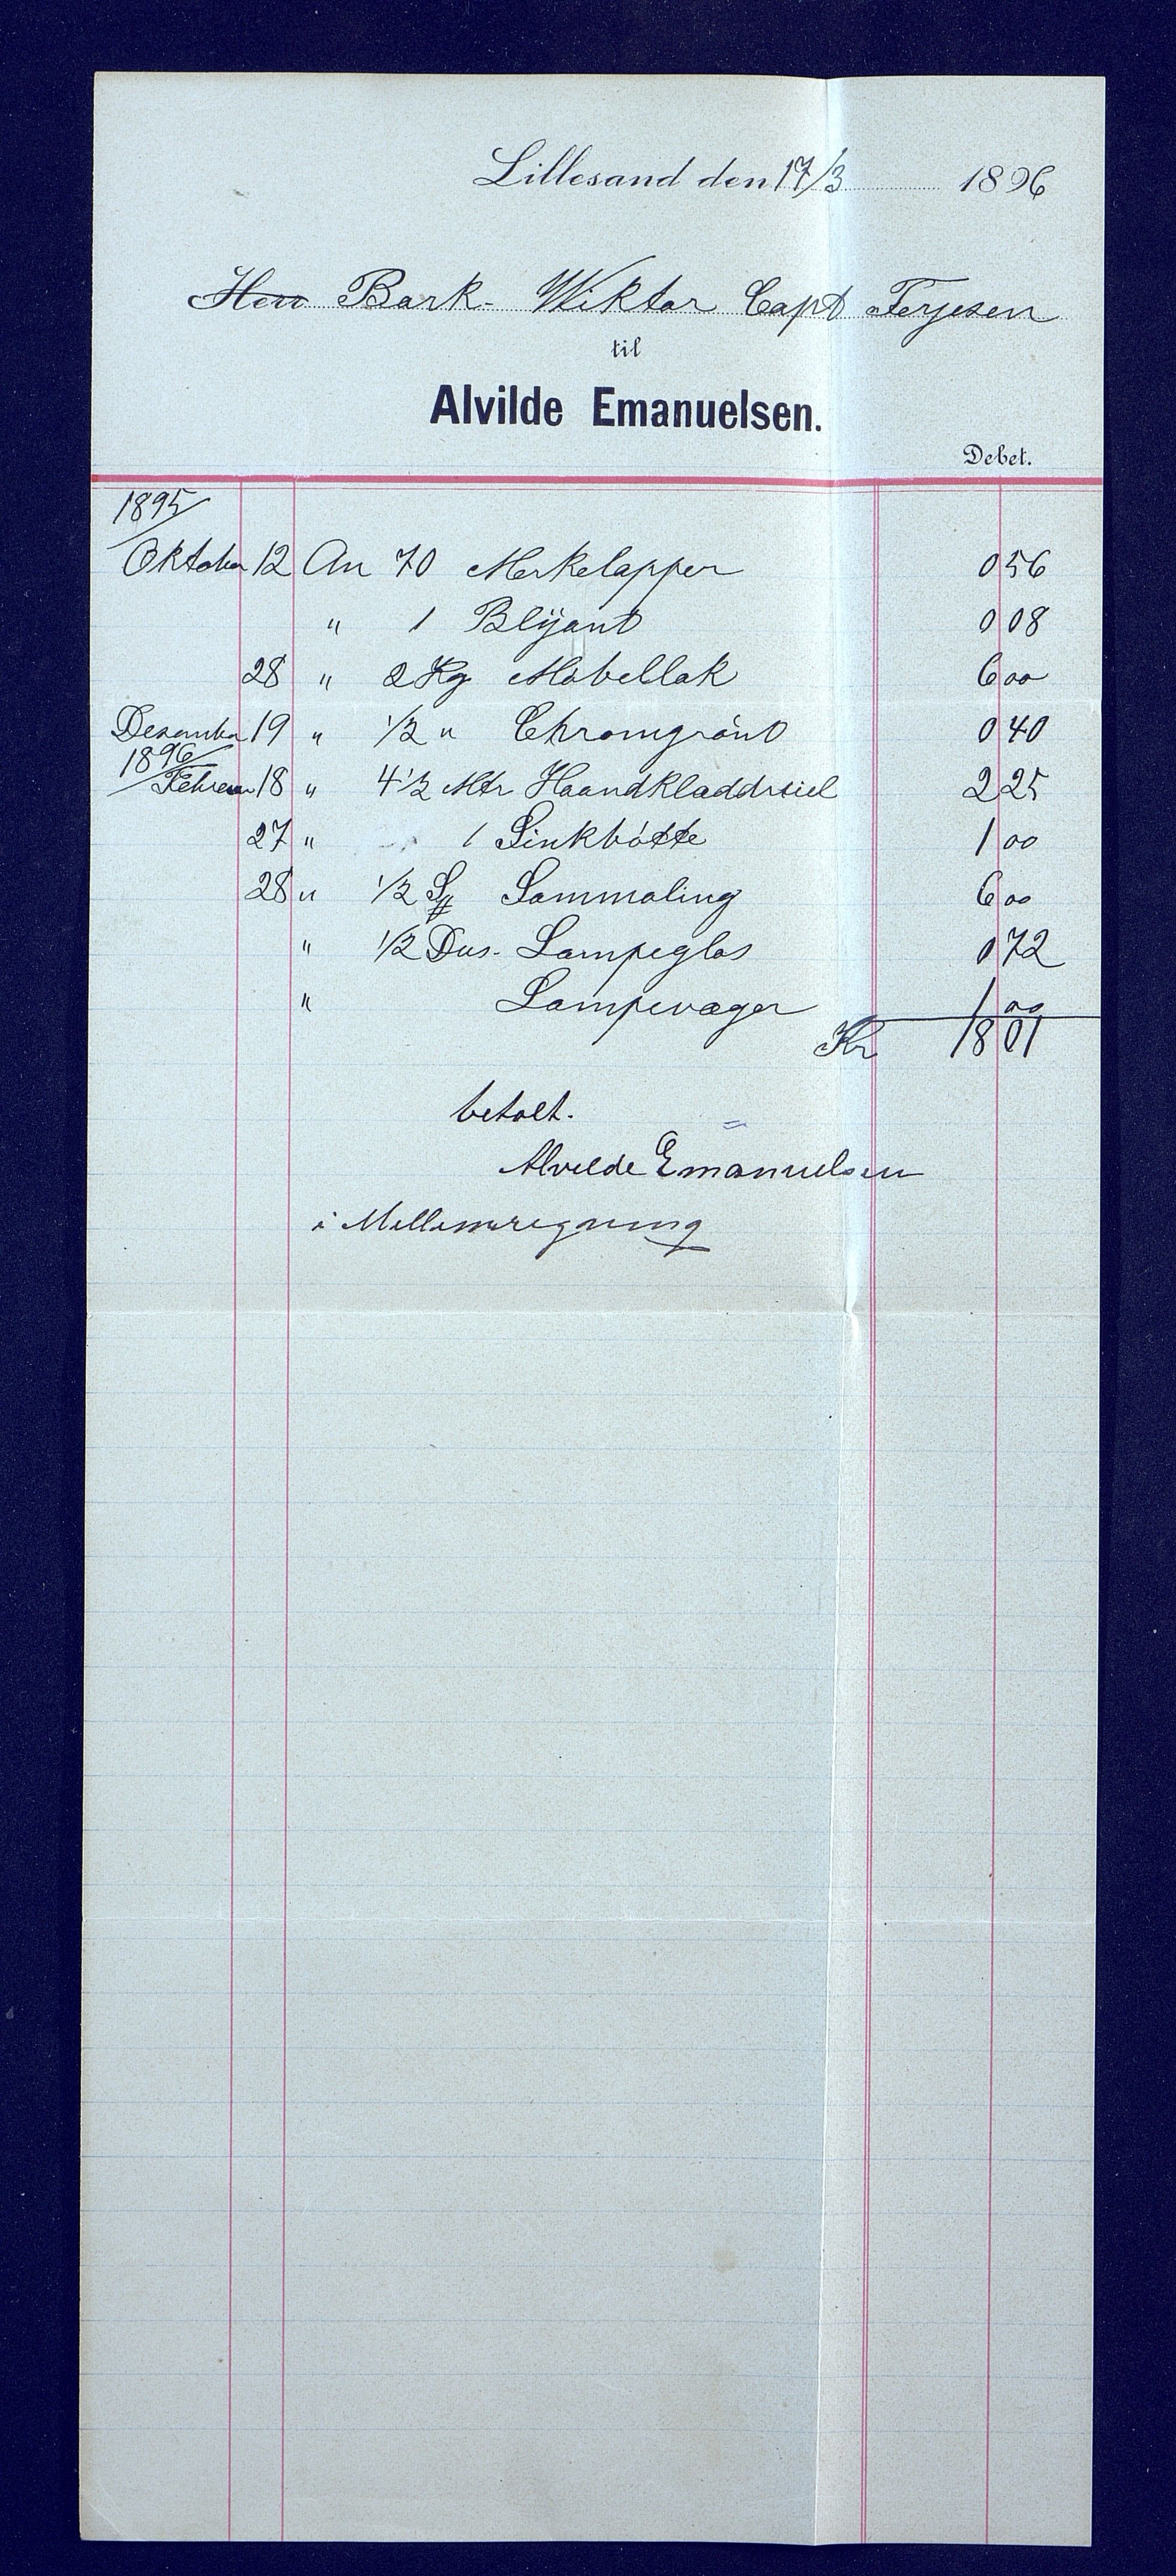 Lillesand den 17/3 1896
Herr Bark- Wiktor Capt Terjesen
til
Alvilde Emanuelsen.
Debet.
1895
Oktober 12 An 70 Merkelapper 0 56
" 1 Blÿant 0 08
28 " 2 Kg Møbellak 6 00
Desember 19 " 1/2 " Chromgrönt 0 40
1896
Februar 18 " 4 1/2 Mtr Haandkladdreiel 2 25
27 " 1 Sinkbøtte 1 00
28 " 1/2 Sommaling 6 00
" 1/2 Dus. Lampeglas 0 72
" Lampevæger 1 00
Kr 18 01
betalt.
Alvilde Emanuelsen
i Mellemregning